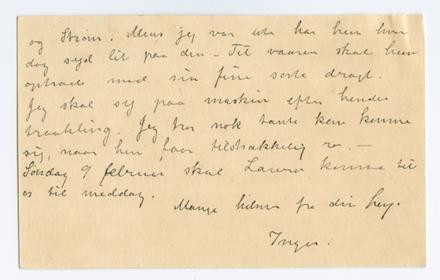 og Strøm. Mens jeg var ute har hun hver
dag syd lit paa den – Til vaaren skal hun
optræde med sin fine sorte dragt.
Jeg skal sy paa maskin efter hendes
traakling. Jeg tror nok tante kan komme
sig, naar hun faar tilstrækkelig ro. –
Søndag 9 februar skal Laura komme til
os til middag.
Mange hilsner fra din
Inger.